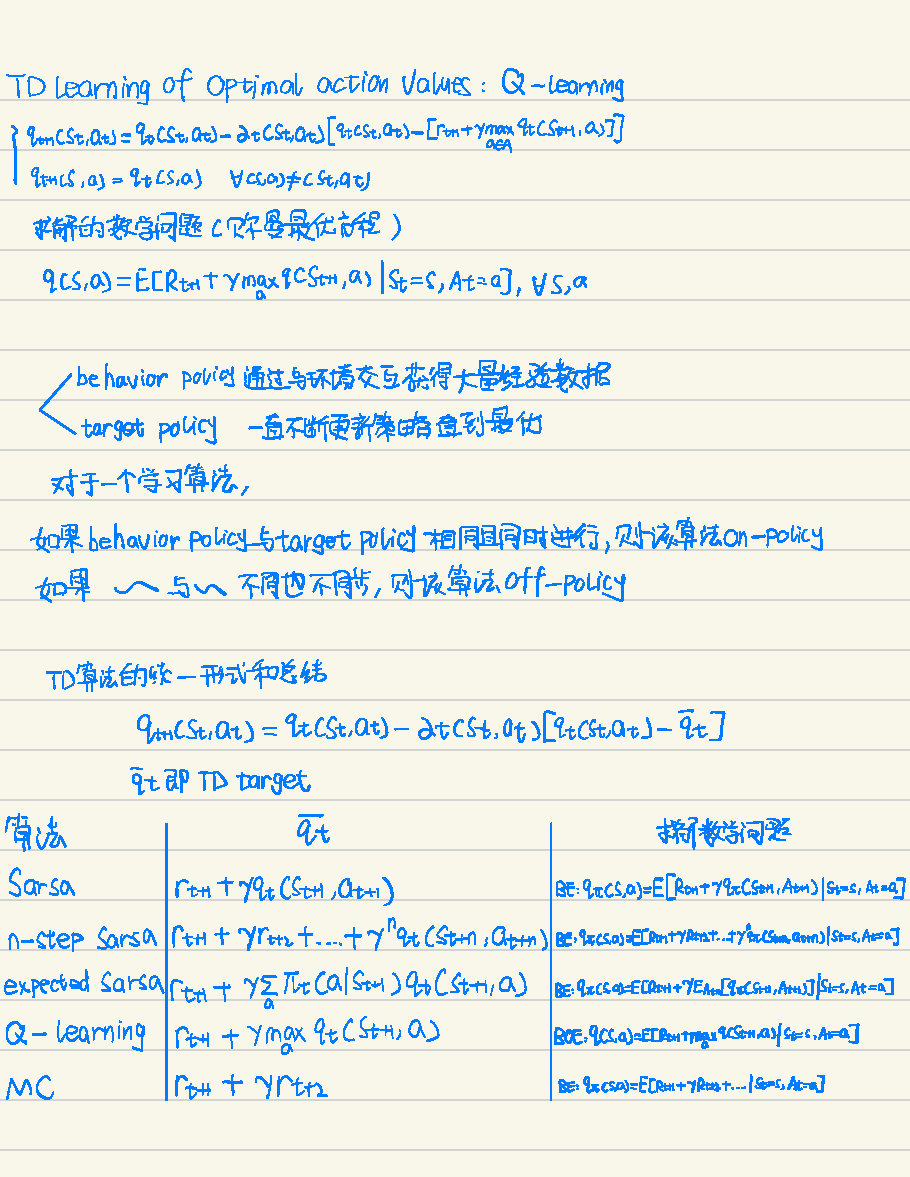 TD Learning of Optimal action Values: Q-learning
q_{t+1}(s_t,a_t)=q_t(s_t,a_t)-α_t(s_t,a_t)[q_t(s_t,a_t)-[r_{t+1}+γ max_{a∈A} q_t(s_{t+1},a)]]
q_{t+1}(s,a)=q_t(s,a) ∀(s,a)≠(s_t,a_t)
求解的数学问题(贝尔曼最优方程)
q(s,a)=E[R_{t+1}+γ max_a q(S_{t+1},a)|S_t=s,A_t=a], ∀s,a
behavior policy 通过与环境交互获得大量经验数据
target policy 一直不断更新策略直到最优
对于一个学习算法,
如果behavior policy与target policy 相同且同时进行,则该算法on-policy
如果 ~ 与 ~ 不同也不同步,则该算法off-policy
TD算法的统一形式和总结
q_{t+1}(s_t,a_t)=q_t(s_t,a_t)-α_t(s_t,a_t)[q_t(s_t,a_t)-q̄_t]
q̄_t即TD target
算法 q̄_t 求解数学问题
Sarsa r_{t+1}+γq_t(s_{t+1},a_{t+1}) BE: q_π(s,a)=E[R_{t+1}+γq_π(S_{t+1},A_{t+1})|S_t=s,A_t=a]
n-step Sarsa r_{t+1}+γr_{t+2}+...+γ^n q_t(s_{t+n},a_{t+n}) BE: q_π(s,a)=E[R_{t+1}+γR_{t+2}+...+γ^n q_π(s_{t+n},a_{t+n})|S_t=s,A_t=a]
expected Sarsa r_{t+1}+γ∑_a π_t(a|s_{t+1})q_t(s_{t+1},a) BE: q_π(s,a)=E[R_{t+1}+γE_{A_{t+1}}[q_π(S_{t+1},A_{t+1})]|S_t=s,A_t=a]
Q-learning r_{t+1}+γ max_a q_t(s_{t+1},a) BOE: q(s,a)=E[R_{t+1}+γ max_a q(S_{t+1},a)|S_t=s,A_t=a]
MC r_{t+1}+γr_{t+2} BE: q_π(s,a)=E[R_{t+1}+γR_{t+2}+...|S_t=s,A_t=a]